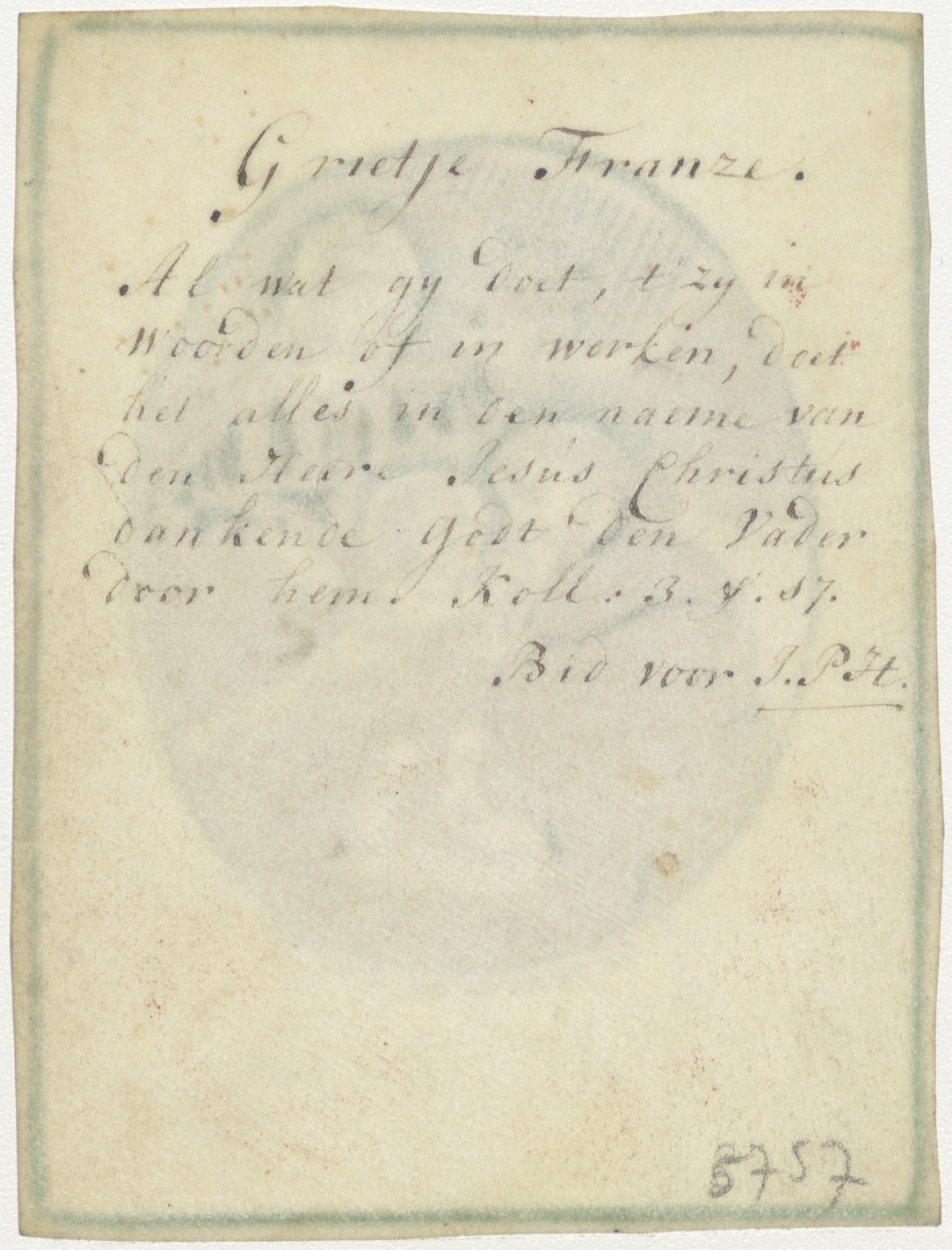 Grietje Franze.
Al wat gy doet, t'zy in
woorden of in werken, doet
het alles in den naeme van
den Heere Jesus Christus
dankende Godt den Vader
door hem. Koll: 3. ꝟ. 17.
Bid voor J.P.H.
5757